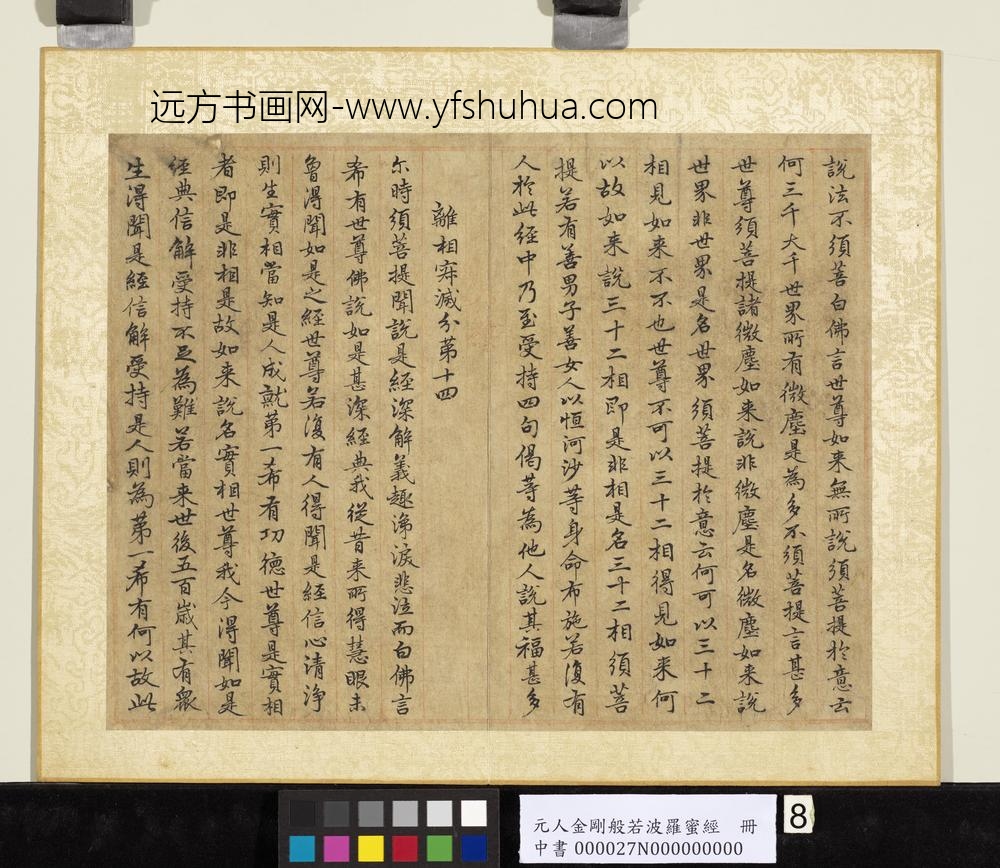 远方书画网-www.yfshuhua.com
說法不須菩白佛言世尊如来無所說須菩提扵意云
何三千大千世界所有微塵是為多不須菩提言甚多
世尊須菩提諸微塵如来說非微塵是名微塵如来說
世界非世界是名世界須菩提扵意云何可以三十二
相見如来不不也世尊不可以三十二相得見如来何
以故如来說三十二相即是非相是名三十二相須菩
提若有善男子善女人以恒河沙等身命布施若復有
人扵此経中乃至受持四句偈等為他人說其福甚多
離相寂滅分第十四
尒時須菩提聞說是経深解義趣涕淚悲泣而白佛言
希有世尊佛說如是甚深経典我従昔来所得慧眼未
曾得聞如是之経世尊若復有人得聞是経信心清淨
則生實相當知是人成就第一希有功徳世尊是實相
者即是非相是故如来說名實相世尊我今得聞如是
経典信解受持不足為難若當来世後五百歲其有衆
生得聞是経信解受持是人則為第一希有何以故此
元人金剛般若波羅蜜經 冊
中書 000027N000000000
8